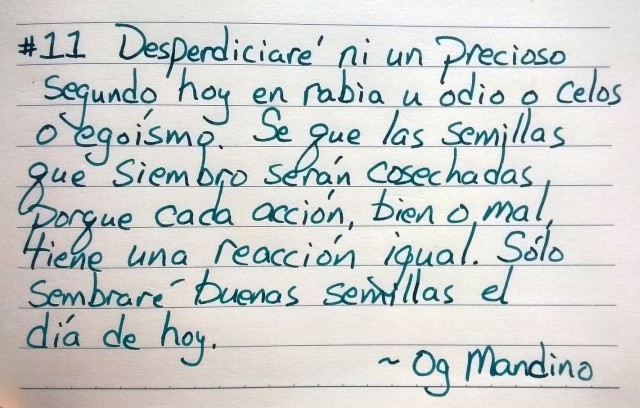 #11 Desperdiciaré ni un precioso
segundo hoy en rabia u odio o celos
o egoísmo. Se que las semillas
que siembro serán cosechadas,
porque cada acción, bien o mal,
tiene una reacción igual. Sólo
sembraré buenas semillas el
día de hoy.
~ Og Mandino